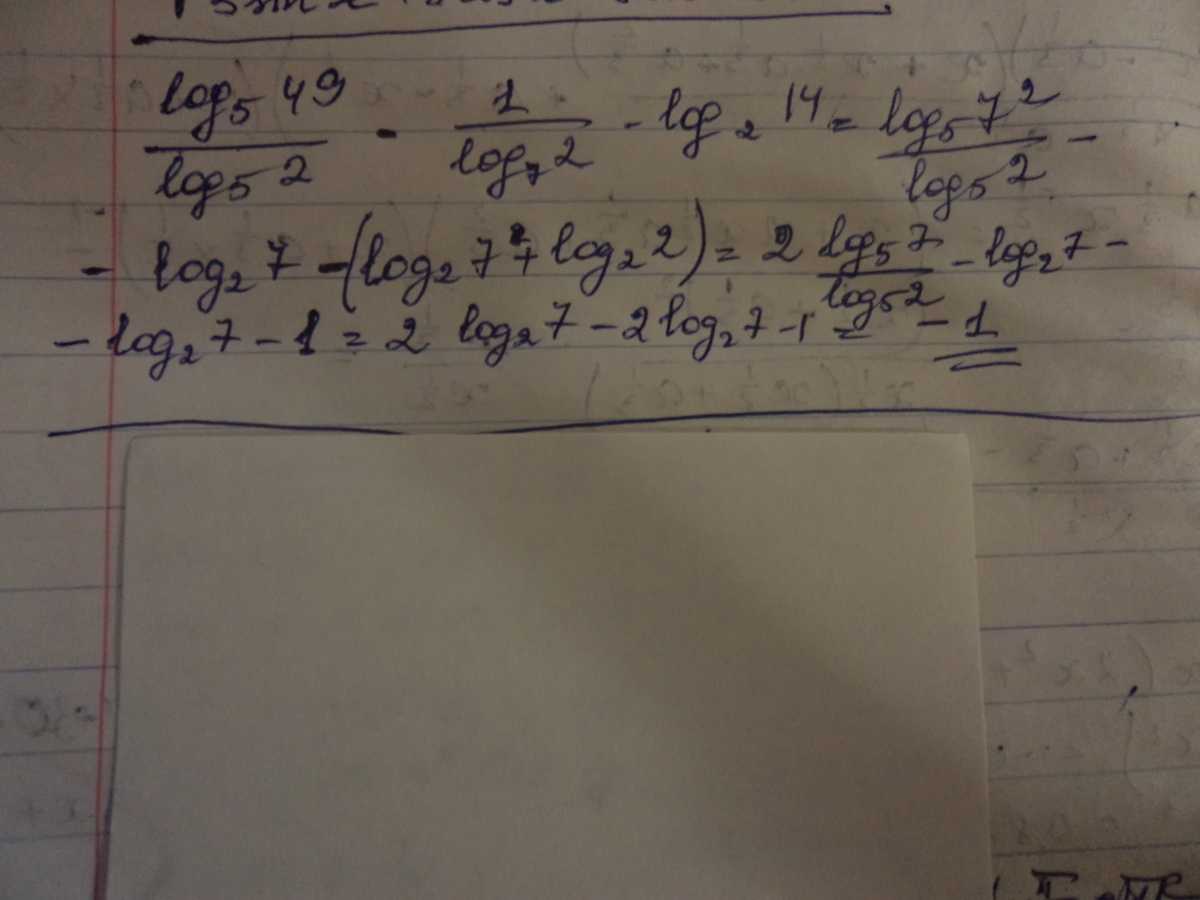 log₅ 49 / log₅ 2 - 1 / log₇ 2 - log₂ 14 = log₅ 7² / log₅ 2 -
- log₂ 7 - (log₂ 7 + log₂ 2) = 2 log₅ 7 / log₅ 2 - log₂ 7 -
- log₂ 7 - 1 = 2 log₂ 7 - 2 log₂ 7 - 1 = - 1